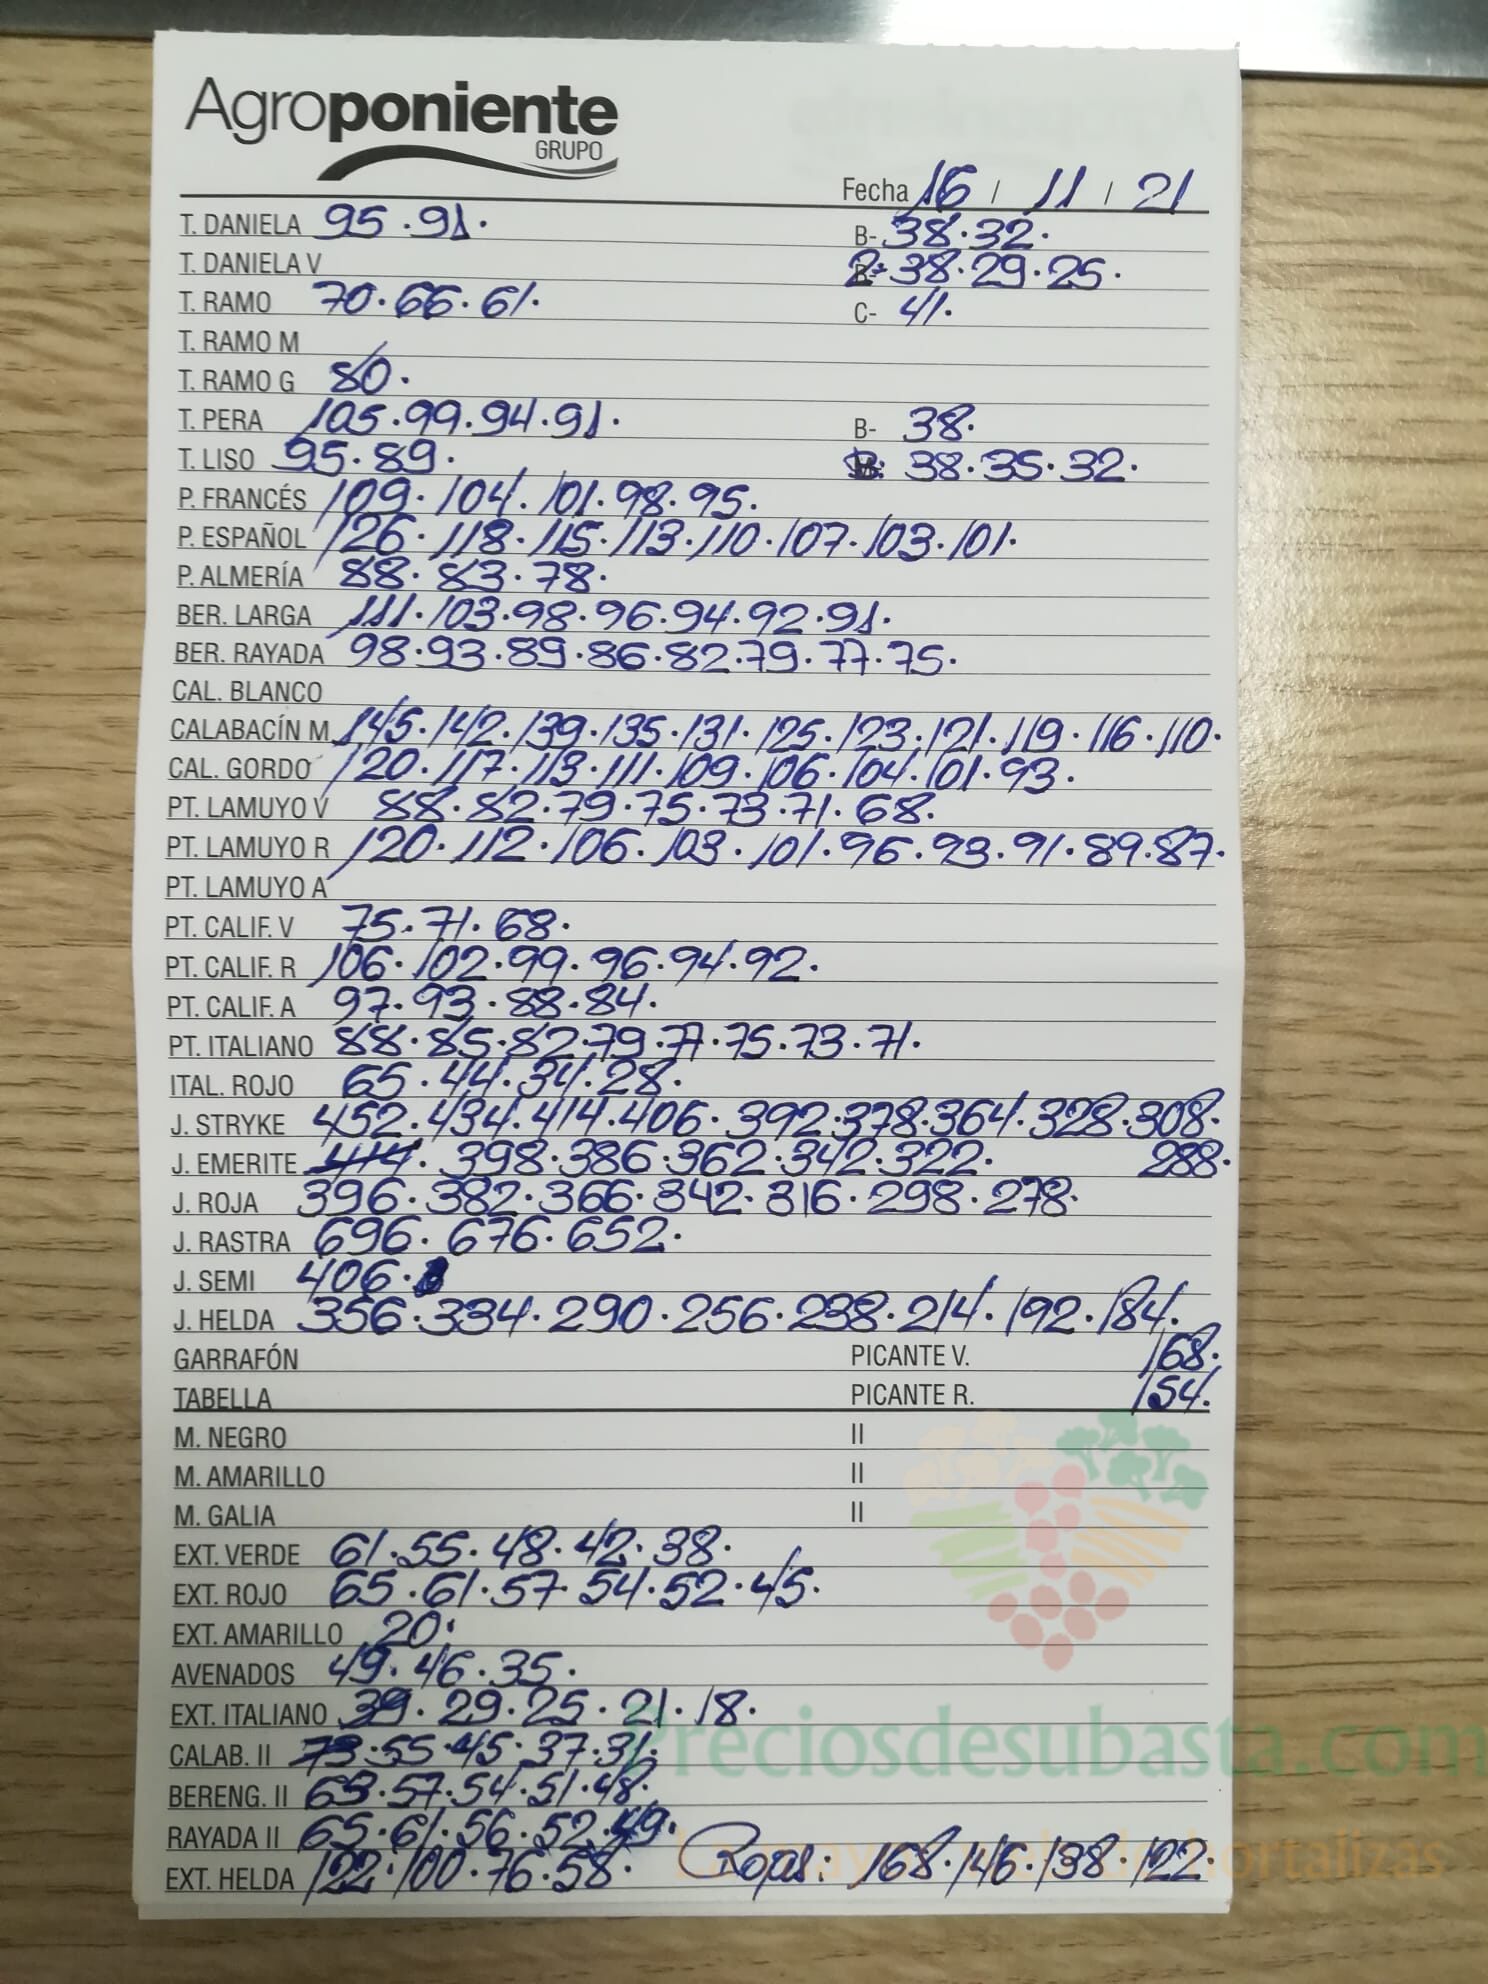 Agroponiente
GRUPO
Fecha 16 / 11 / 21
T. DANIELA 95 · 91· B- 38·32·
T. DANIELA V 2- 38·29·25·
T. RAMO 70·66·61· C- 41·
T. RAMO M
T. RAMO G 80·
T. PERA 105·99·94·91· B- 38·
T. LISO 95·89· B: 38·35·32·
P. FRANCÉS 109·104·101·98·95·
P. ESPAÑOL 126·118·115·113·110·107·103·101·
P. ALMERÍA 88·83·78·
BER. LARGA 111·103·98·96·94·92·91·
BER. RAYADA 98·93·89·86·82·79·77·75·
CAL. BLANCO
CALABACÍN M 145·142·139·135·131·125·123·121·119·116·110·
CAL. GORDO 120·117·113·111·109·106·104·101·93·
PT. LAMUYO V 88·82·79·75·73·71·68·
PT. LAMUYO R 120·112·106·103·101·96·93·91·89·87·
PT. LAMUYO A
PT. CALIF. V 75·71·68·
PT. CALIF. R 106·102·99·96·94·92·
PT. CALIF. A 97·93·88·84·
PT. ITALIANO 88·85·82·79·77·75·73·71·
ITAL. ROJO 65·44·34·28·
J. STRYKE 452·434·414·406·392·378·364·328·308·
J. EMERITE 414·398·386·362·342·322· 288·
J. ROJA 396·382·366·342·316·298·278·
J. RASTRA 696·676·652·
J. SEMI 406·
J. HELDA 356·334·290·256·238·214·192·184·
GARRAFÓN PICANTE V. 168·
TABELLA PICANTE R. 154·
M. NEGRO II
M. AMARILLO II
M. GALIA II
EXT. VERDE 61·55·48·42·38·
EXT. ROJO 65·61·57·54·52·45·
EXT. AMARILLO 20·
AVENADOS 49·46·35·
EXT. ITALIANO 39·29·25·21·18·
Preciosdesubasta.com
CALAB. II 73·55·45·37·31·
BERENG. II 63·57·54·51·48·
RAYADA II 65·61·56·52·49·
EXT. HELDA 122·100·76·58· Rojas: 168·146·138·122·
hortalizas